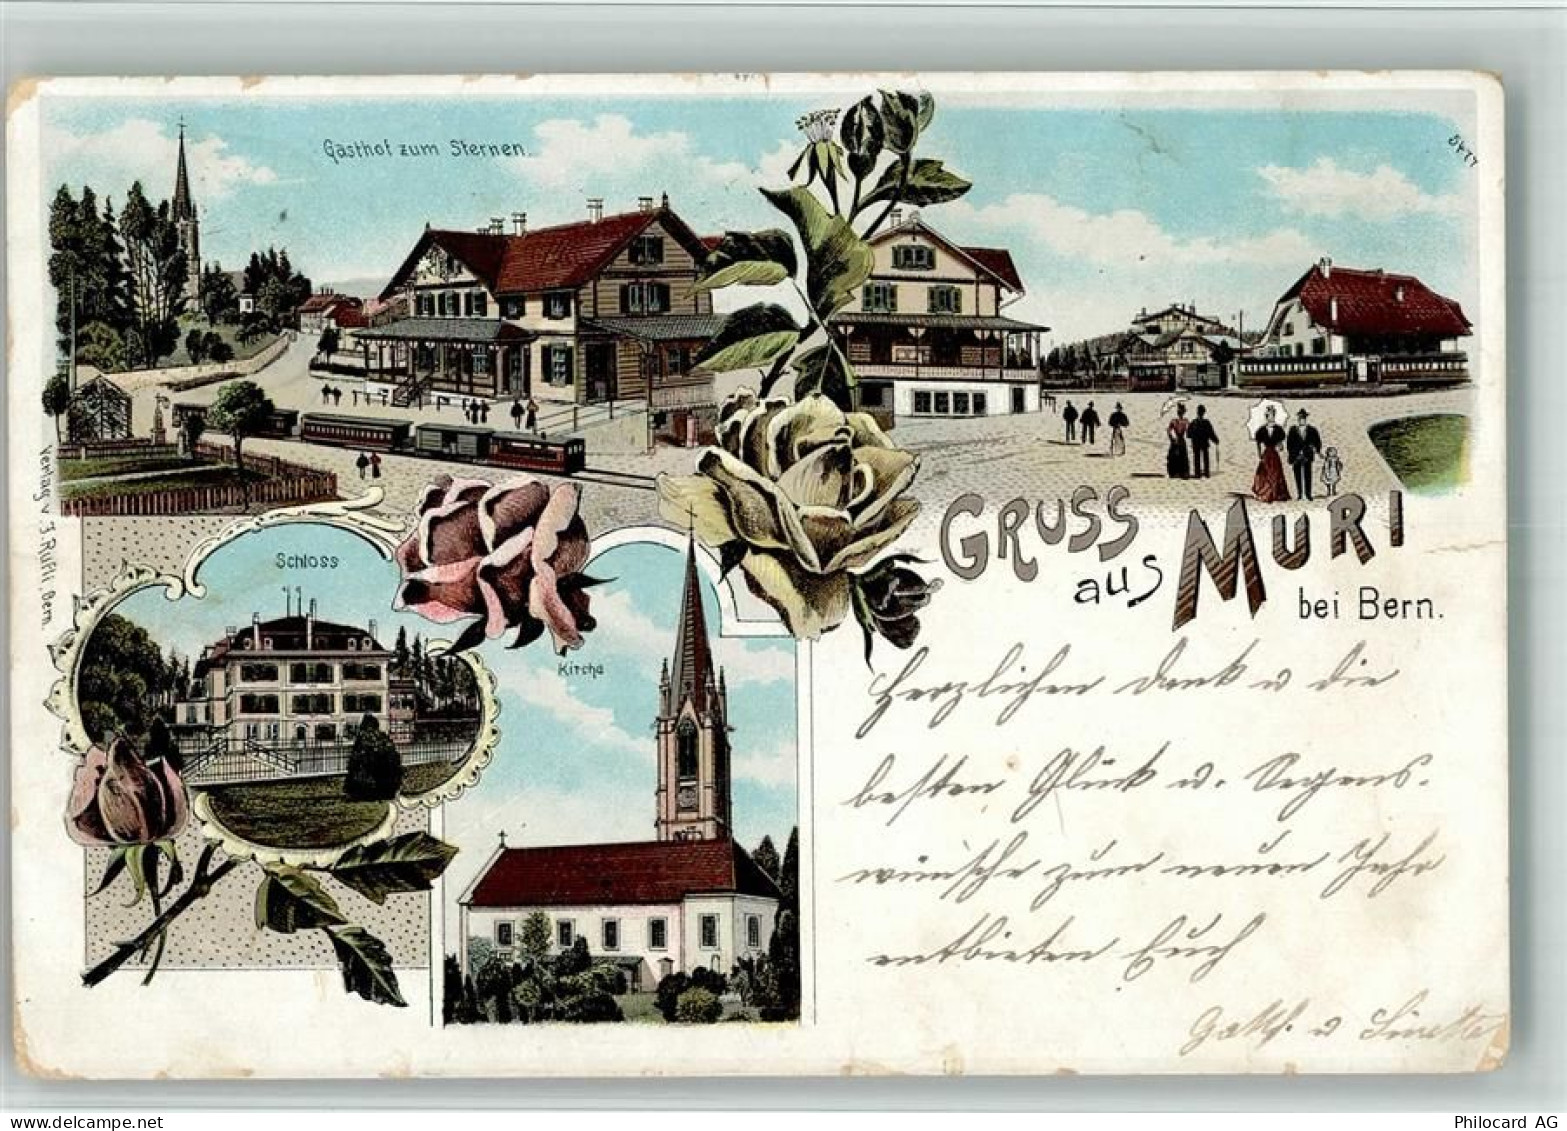 Gasthof zum Sternen.
5477
Verlag v. J. Rüfli, Bern.
Schloss
Kirche
GRUSS
aus MURI
bei Bern.
Herzlichen Dank u die
besten Glück u. Segens-
wünsche zum neuen Jahr
entbieten Euch
Gottf. u Linette
www.delcampe.net
philocard
Philocard AG